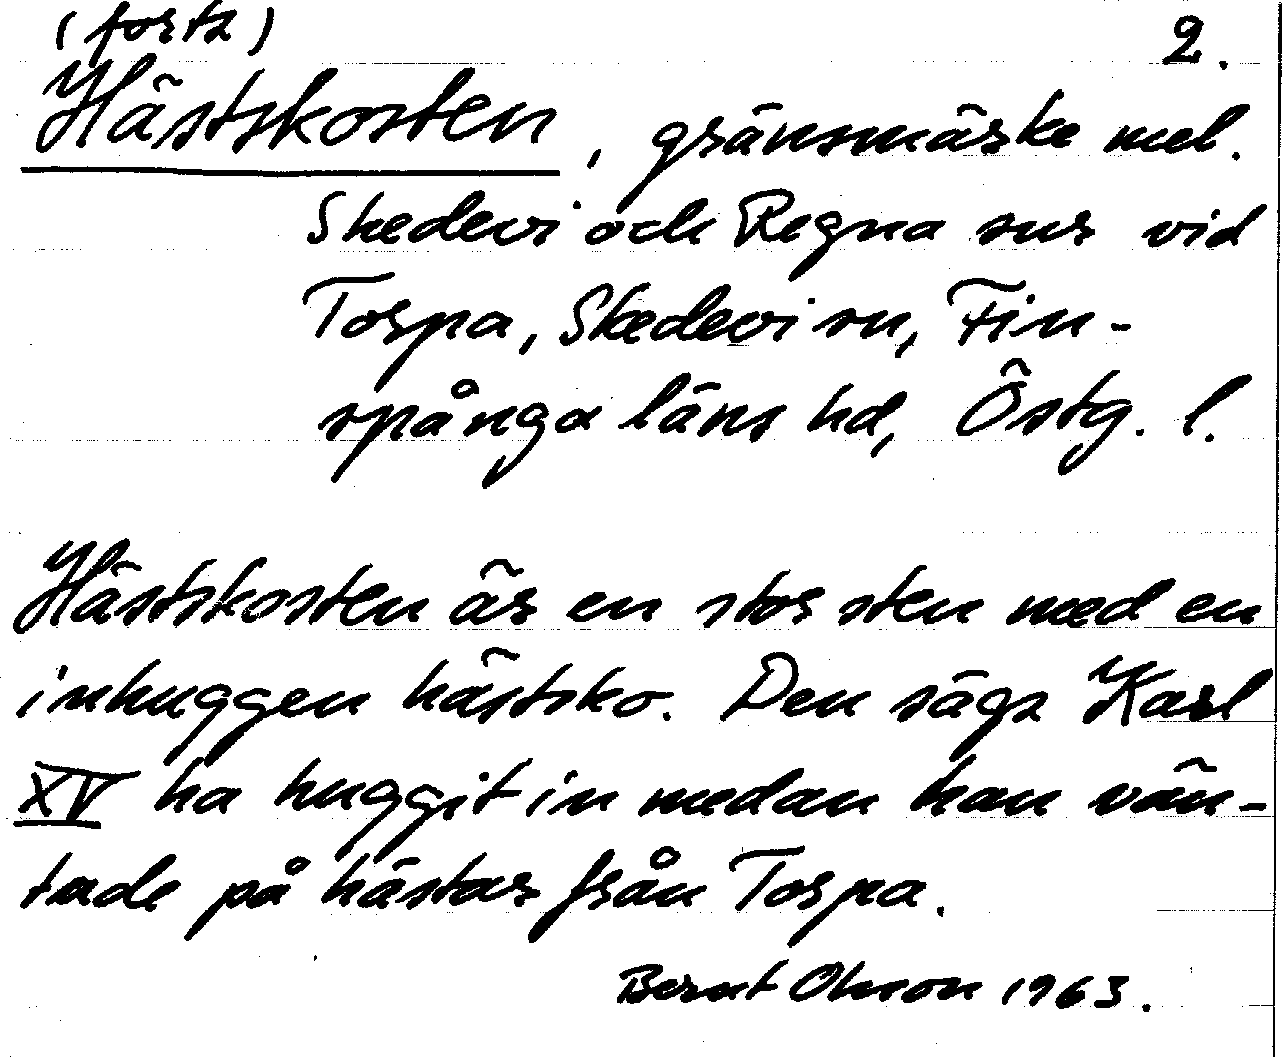 (forts) 2.
Hästskosten, gränsmärke mel.
Skedevi och Regna snr vid
Torpa, Skedevi sn, Fin-
spånga läns hd, Östg. l.
Hästskosten är en stor sten med en
inhuggen hästsko. Den sägs Karl
XV ha huggit in medan han vän-
tade på hästar från Torpa.
Bernt Olsson 1963.